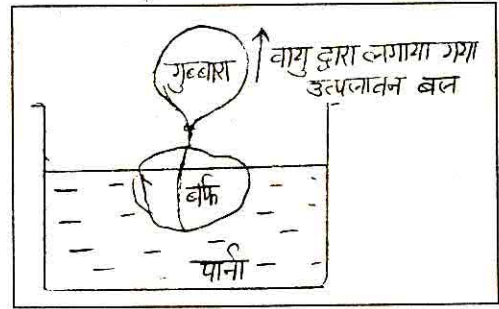 गुब्बारा
वायु द्वारा लगाया गया
उत्पलावन बल
बर्फ
पानी